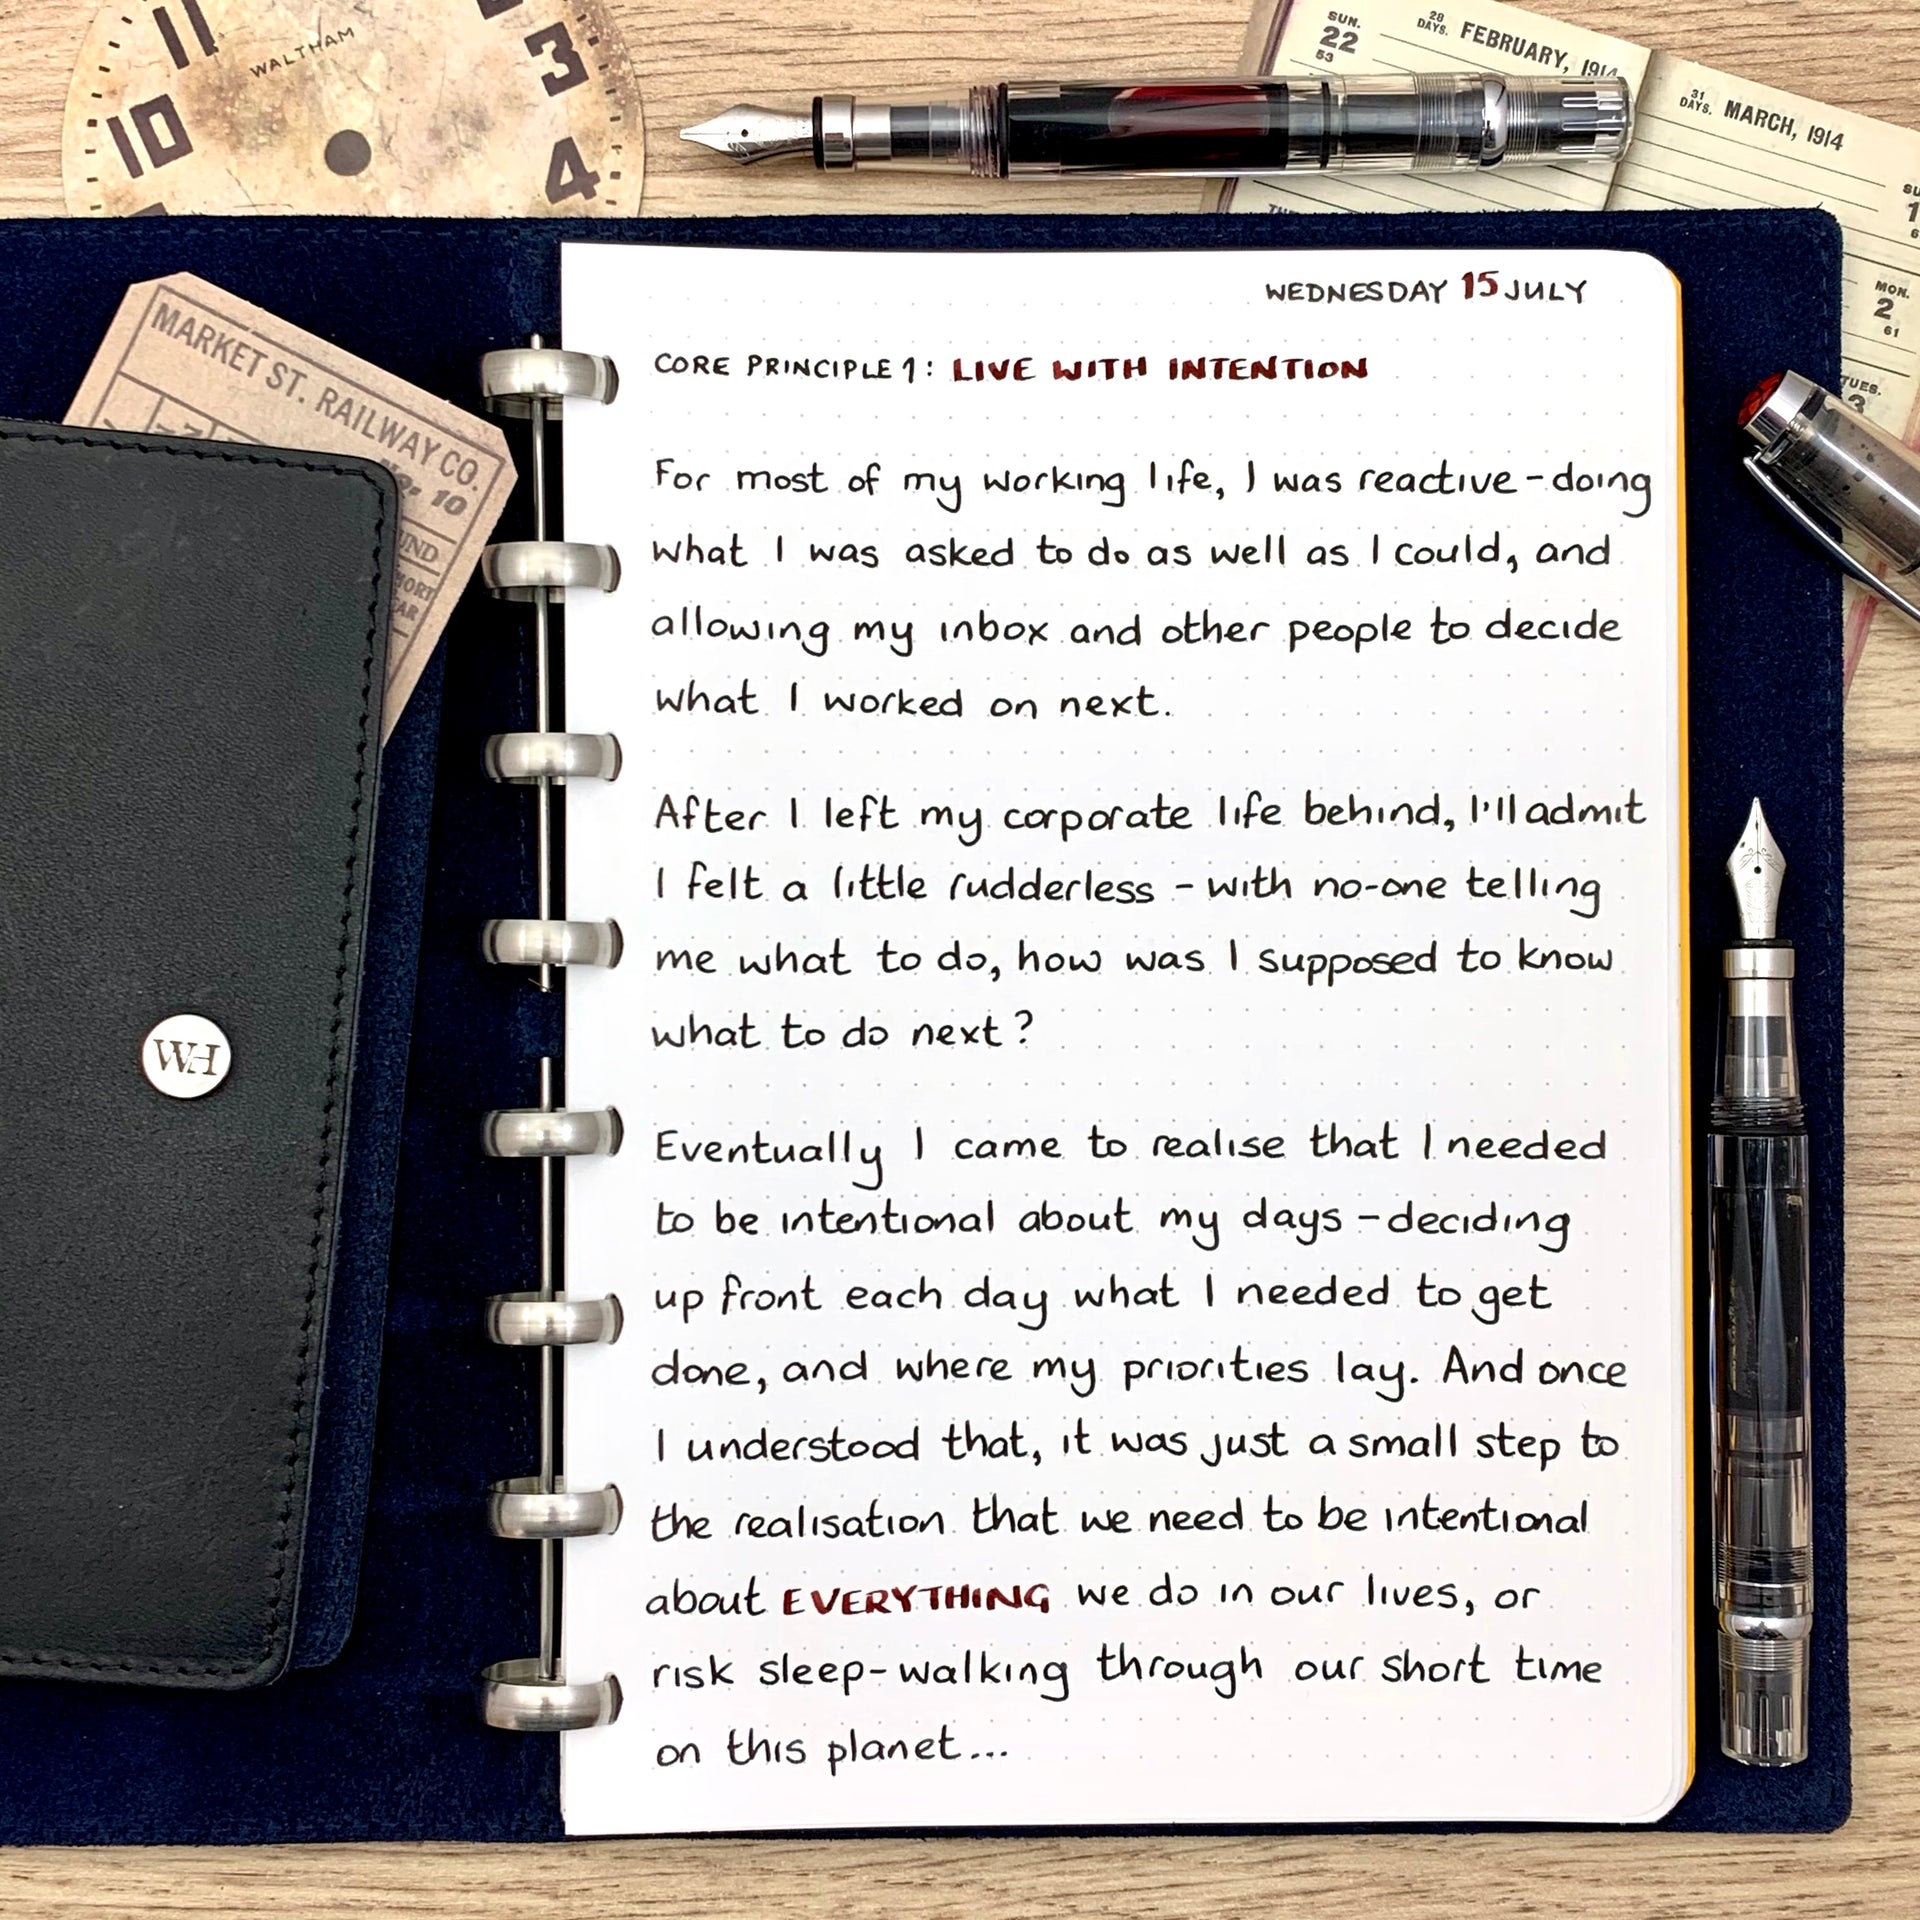 11
WALTHAM
3
10
4
SUN.
22
53
28
DAYS. FEBRUARY, 1914
31
DAYS. MARCH, 1914
MON.
2
61
TUES.
3
MARKET ST. RAILWAY CO.
10
WH
WEDNESDAY 15 JULY
CORE PRINCIPLE 1: LIVE WITH INTENTION
For most of my working life, I was reactive - doing
what I was asked to do as well as I could, and
allowing my inbox and other people to decide
what I worked on next.
After I left my corporate life behind, I'll admit
I felt a little rudderless - with no-one telling
me what to do, how was I supposed to know
what to do next?
Eventually I came to realise that I needed
to be intentional about my days - deciding
up front each day what I needed to get
done, and where my priorities lay. And once
I understood that, it was just a small step to
the realisation that we need to be intentional
about EVERYTHING we do in our lives, or
risk sleep-walking through our short time
on this planet...